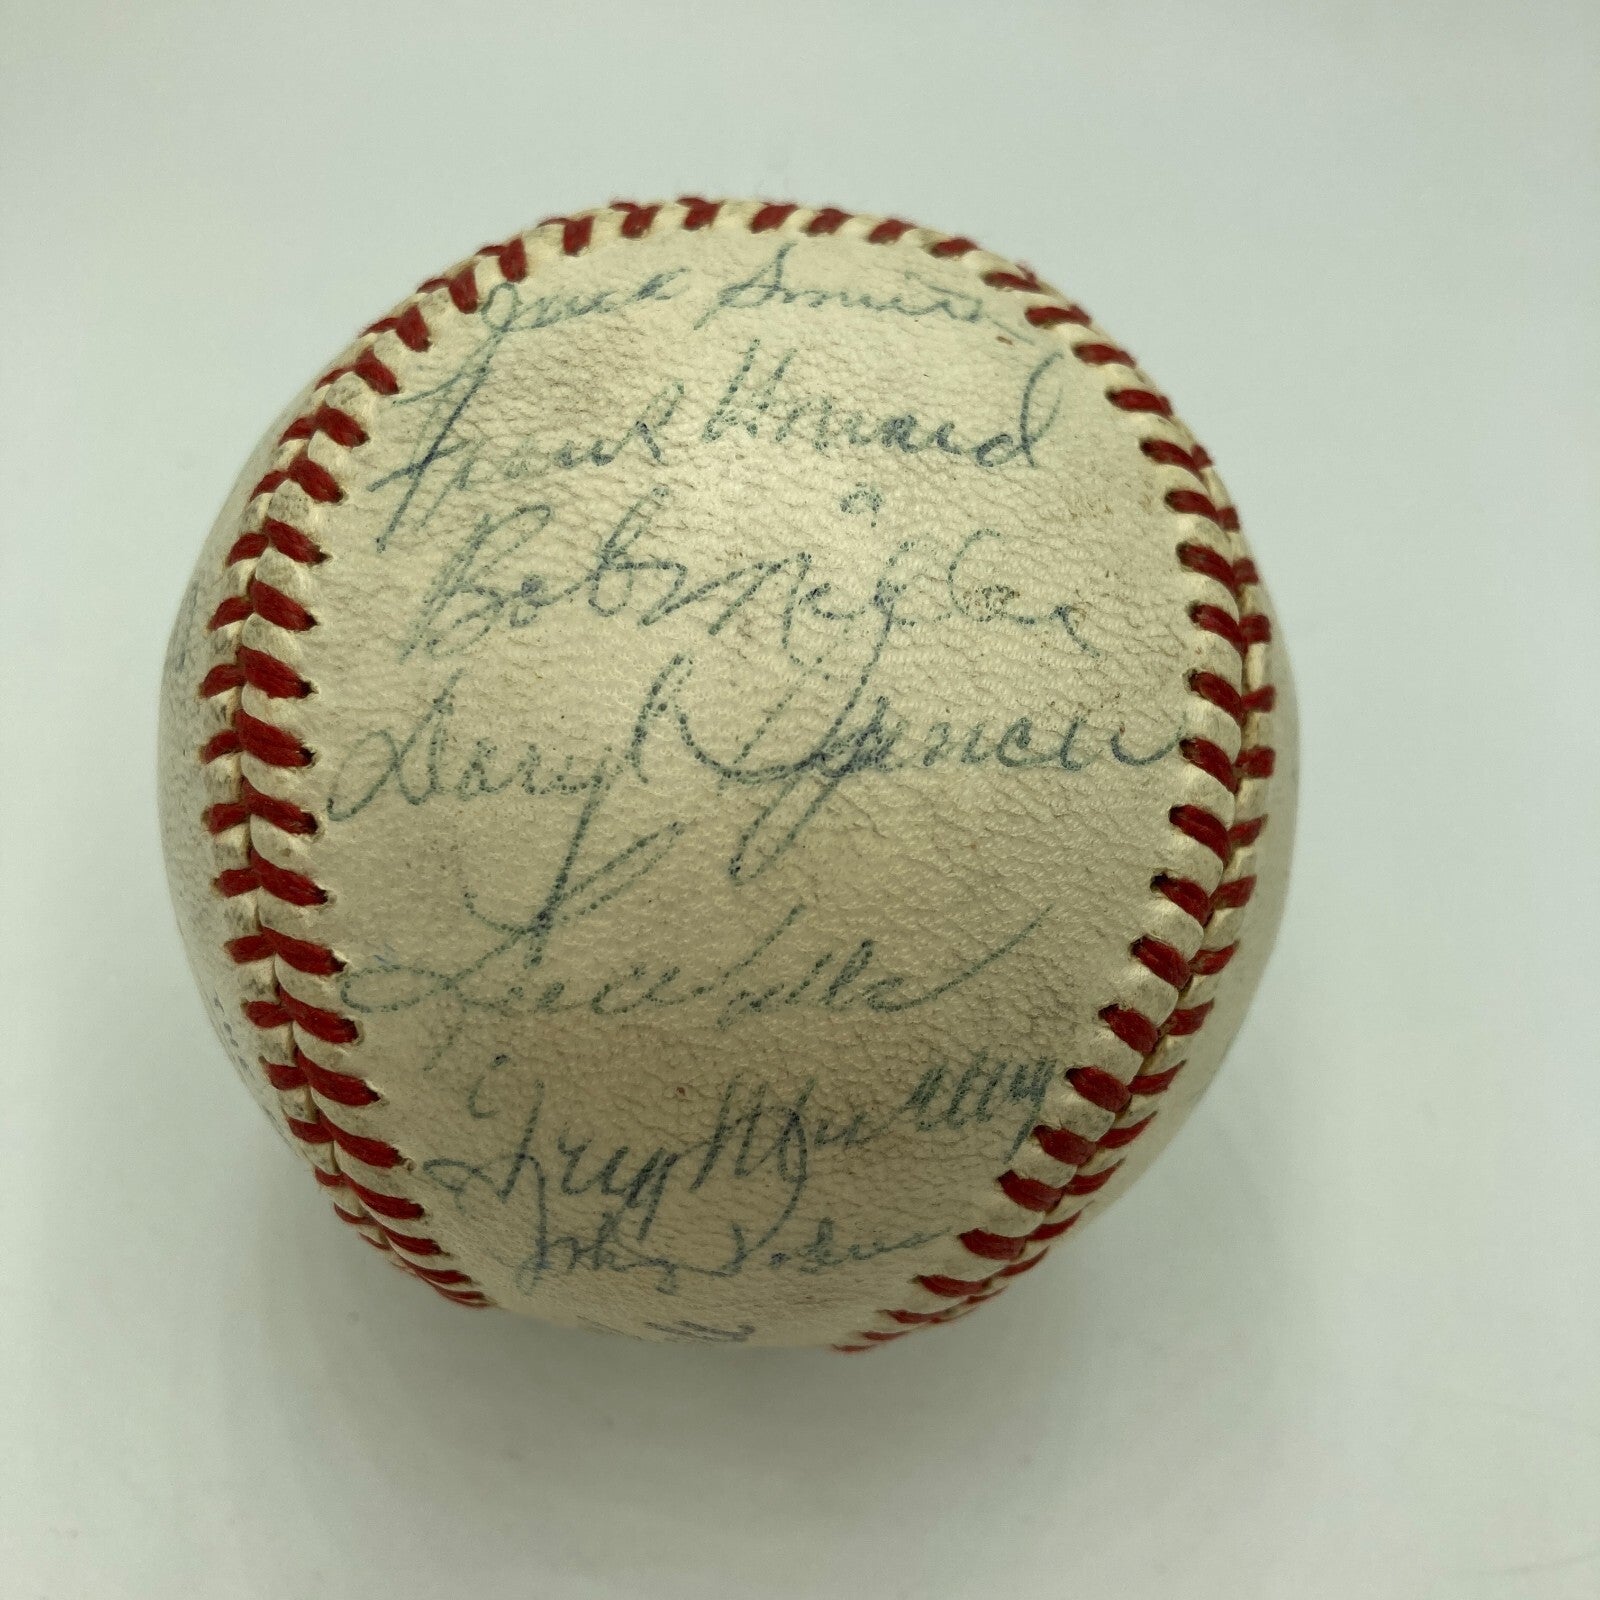 Jack Smith
Frank Howard
Bob Miller
Daryl Spencer
Lee Walls
Greg Mulleavy
Johnny Podres